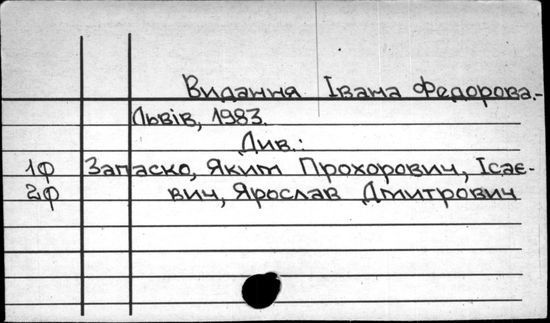 Видання Івана Федорова.-
Львів, 1983.
Див.:
1ф Запаско, Яким Прохорович, Ісає-
2ф вич, Ярослав Дмитрович